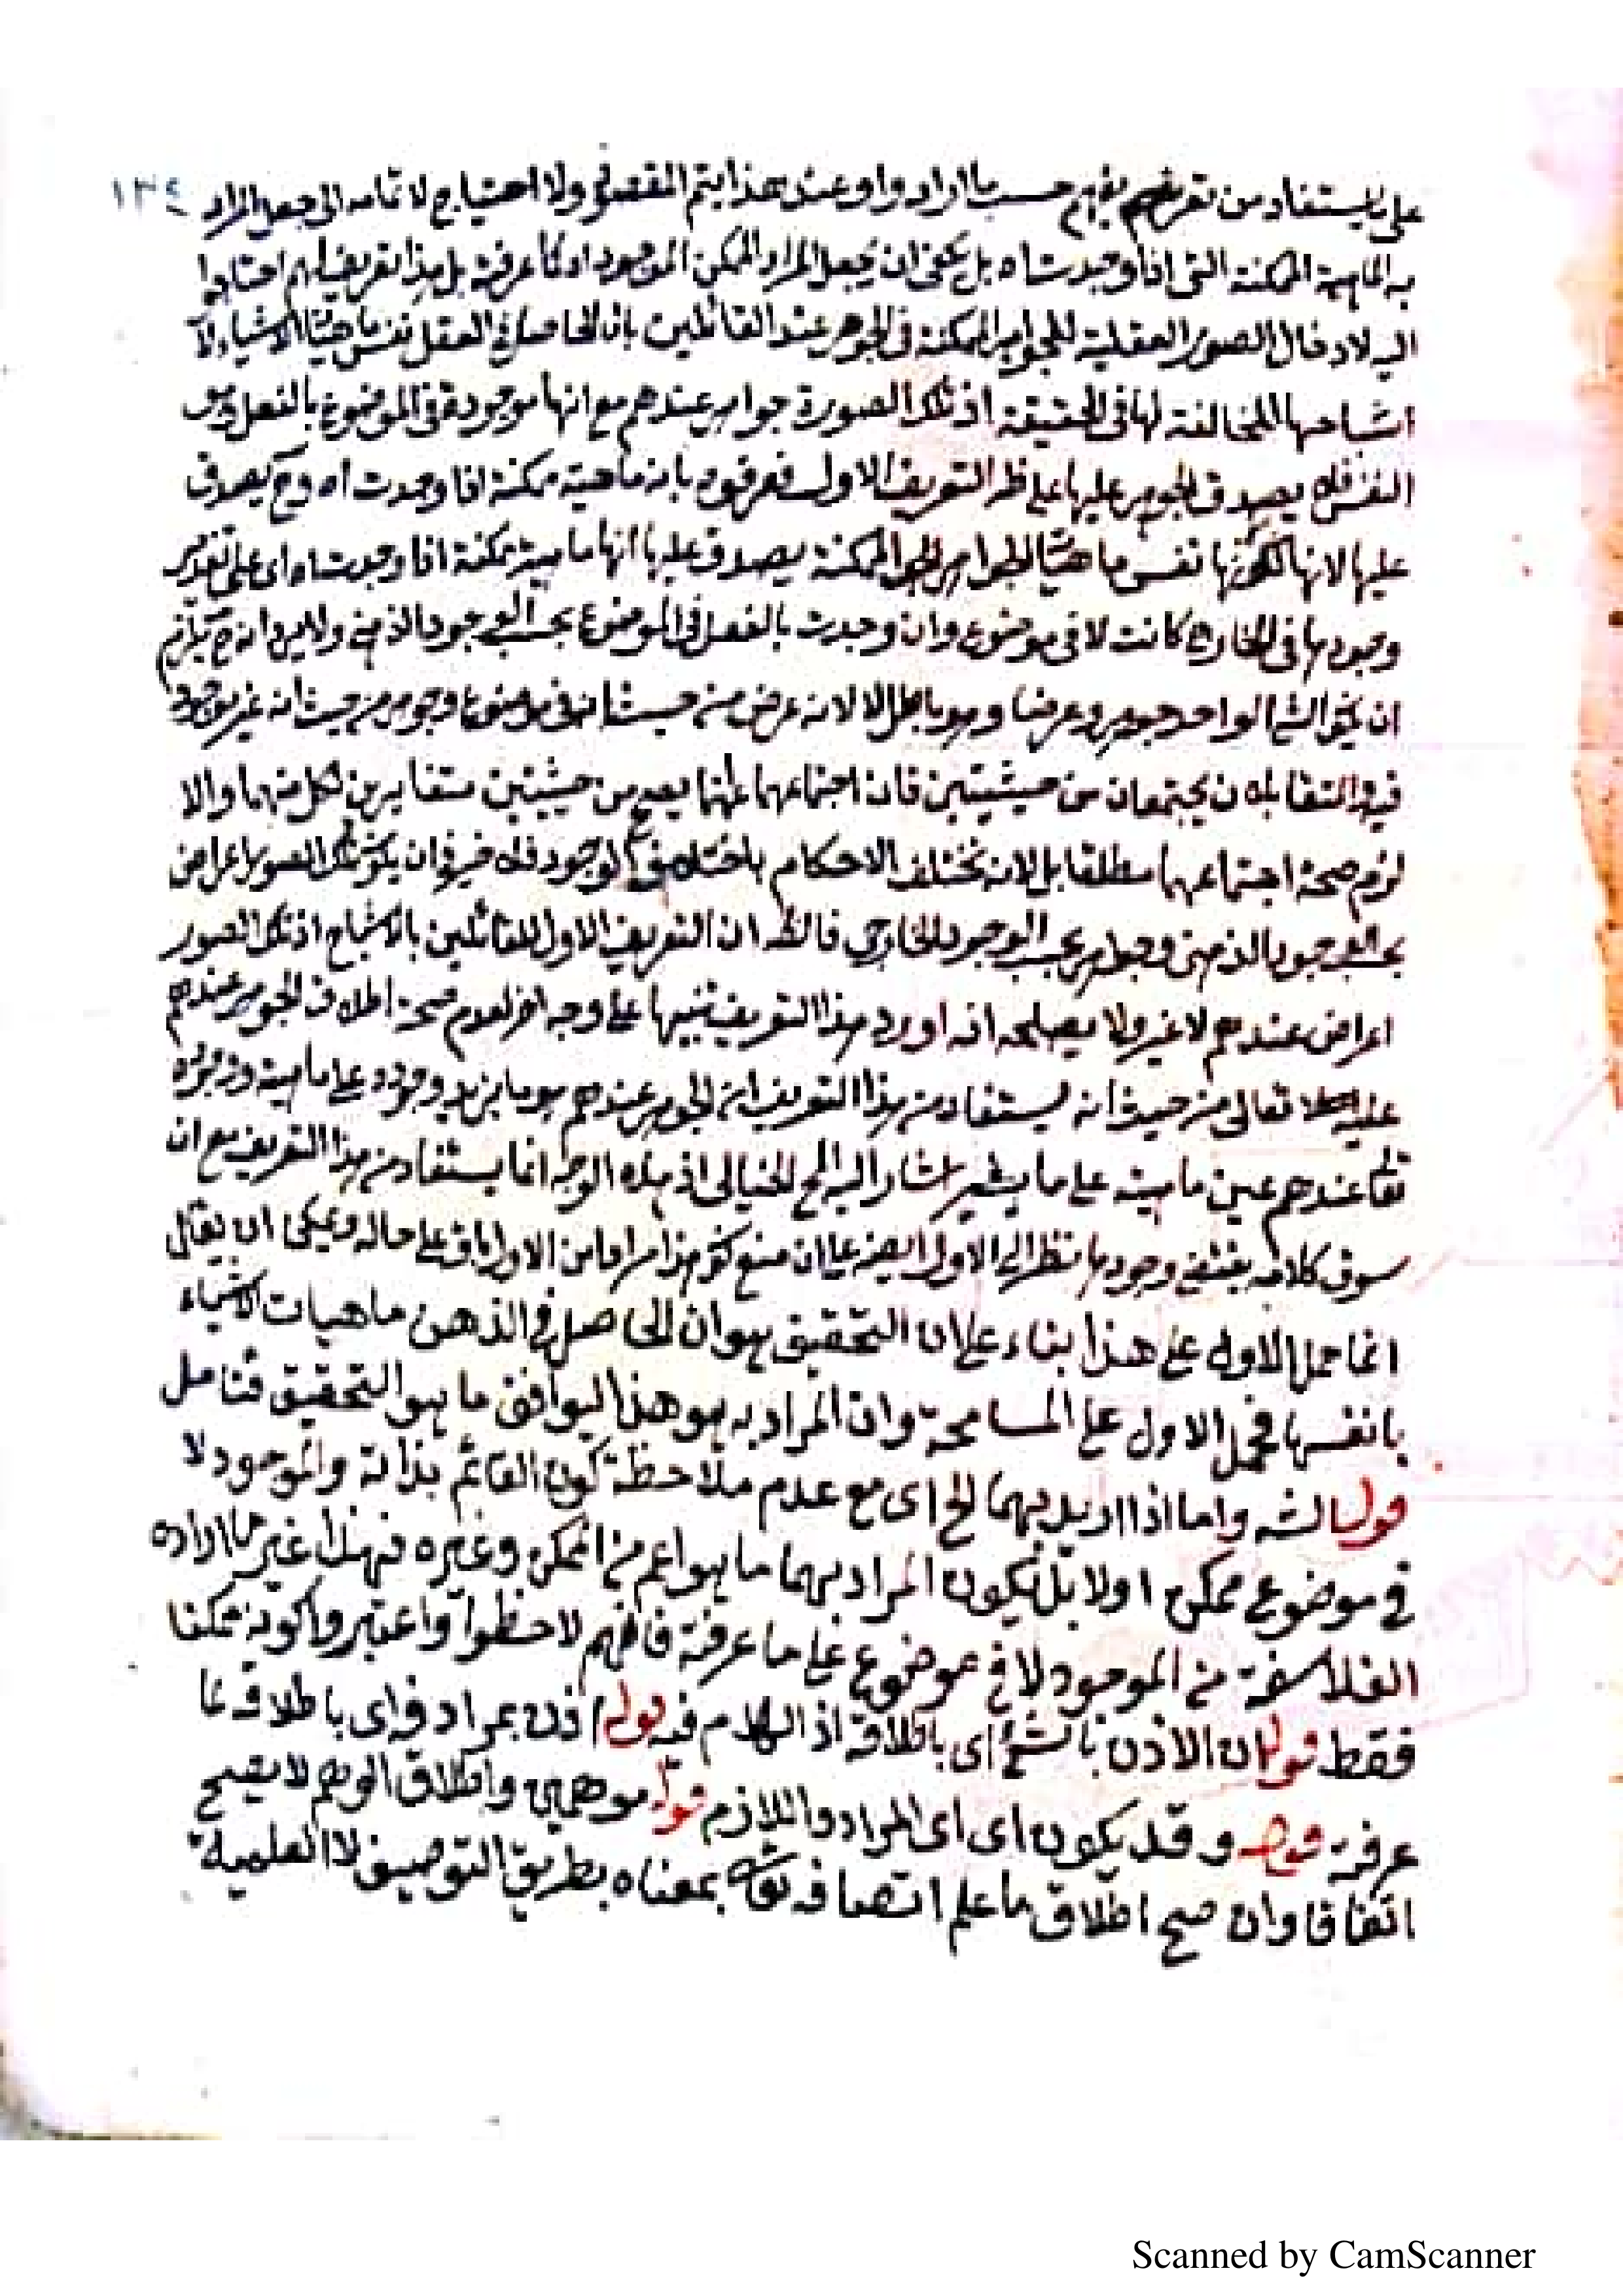 ١٣٤
على ما يستفاد من تعريفهم حسب ما ارادوا وعند هذا يتم المقصود ولا احتياج لاتمامه الى جعل المراد
به الماهية الممكنة التى اذا وجدت اه بل يكفى ان يجعل المراد الممكن الموجود اه كما عرفته بل هذا تعريف لهم احتاجوا
اليه لادخال الصور العقلية للجواهر الممكنة فى الجوهر عند القائلين بان الحاصل فى العقل نفس ماهيات الاشياء لا
اشباحها المخالفة لها فى الحقيقة اذ تلك الصورة جواهر عندهم مع انها موجودة فى الموضوع بالفعل وهو
النفس فلا يصدق الجوهر عليها على ظ التعريف الاول فعرفوه بانه ماهية ممكنة اذا وجدت اه وح يصدق
عليها لانها لكونها نفس ماهيات الجواهر الممكنة يصدق عليها انها ماهية ممكنة اذا وجدت اه اى على تقدير
وجودها فى الخارج كانت لا فى موضوع وان وجدت بالفعل فى الموضوع بحسب الوجود الذهنى ولا يرد انه ح يلزم
ان يكون الشئ الواحد جوهرا وعرضا وهو باطل لا لانه عرض من حيث انه فى موضوع وجوهر من حيث انه غير موجود
فيه والمتقابلان يجتمعان من حيثيتين فان اجتماعهما انما يصح من حيثيتين متغايرين لكل منهما والا
لزم صحة اجتماعهما مطلقا بل لانه تختلف الاحكام باختلاف الوجود فلا ضير فى ان يكون تلك الصور اعراض
بحسب الوجود الذهنى وجواهر بحسب الوجود الخارجى فالظ ان التعريف الاول للقائلين بالاشباح اذ تلك الصور
اعراض عندهم لا غير ولا يصلحه انه اورد هذا التعريف تنبيها على وجه اخر لعدم صحة اطلاق الجوهر عندهم
عليه تعالى من حيث انه يستفاد من هذا التعريف ان الجوهر عندهم هو ما يزيد وجوده على ماهيته ووجوده
تعا عندهم عين ماهيته على ما يشير اليه الخيالى اذ هذه الوجه انما يستفاد من هذا التعريف مع ان
سوق كلامه يقتضى وجودها نظرا الى الاول ايضا على ان منع كون هذا مرادا من الاول باق على حاله ويمكن ان يقال
انما حمل الاول على هذا بناء على ان التحقيق هو ان الحاصل فى الذهن ماهيات الاشياء
بانفسها فحمل الاول على المسامحة وان المراد به هو هذا ليوافق ما هو التحقيق فتامل
قول الشه واما اذا اريد بهما الخ اى مع عدم ملاحظة كون القائم بذاته والموجود لا
فى موضوع ممكن اولا بل يكون المراد بهما ما هو اعم من الممكن وغيره فهذا غير ما اراده
الفلاسفة من الموجود لا فى موضوع على ما عرفته فانهم لاحظوا واعتبروا كونه ممكنا
فقط قوله ان الاذن بالشئ اى باطلاقه اذ الكلام فيه قوله اذن بمرادفه اى باطلاقه لما
عرفته قوله وقد يكون اى اى المراد واللازم قوله موهما واطلاق الوهم لا يصح
اتفاقا وان صح اطلاق ما علم اتصافه تعالى بمعناه بطريق التوصيف لا العلمية
Scanned by CamScanner